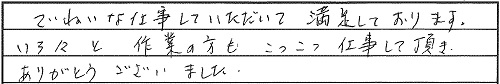 ていねいな仕事していただいて 満足しております。
いろ々と 作業の方も こつこつ 仕事して頂き
ありがとうございました.